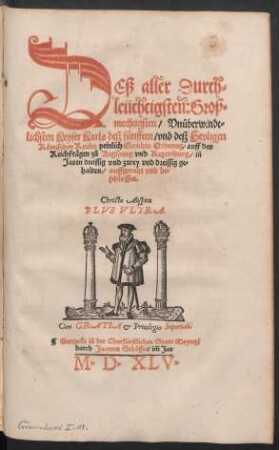 Deß aller Durch-
leuchtigsten Groß-
mechtigsten / Vnüberwindt-
lichsten Keyser Karls deß fünfften / vnd deß Heyligen
Römischen Reichs peinlich Gerichts Ordnung / auff den
Reichßtägen zů Augspurg vnd Regenspurg / in
Jaren dreissig vnd zwey vnd dreissig ge-
halten / auffgericht vnd be-
schlossen.
Christo Auspice
PLVS VLTRA.
Cum GRATIA & Priuilegio Imperiali.
Getruckt in der Churfürstlichen Statt Meyntz
durch Juonem Schöffer im Jar
M. D. XLV.